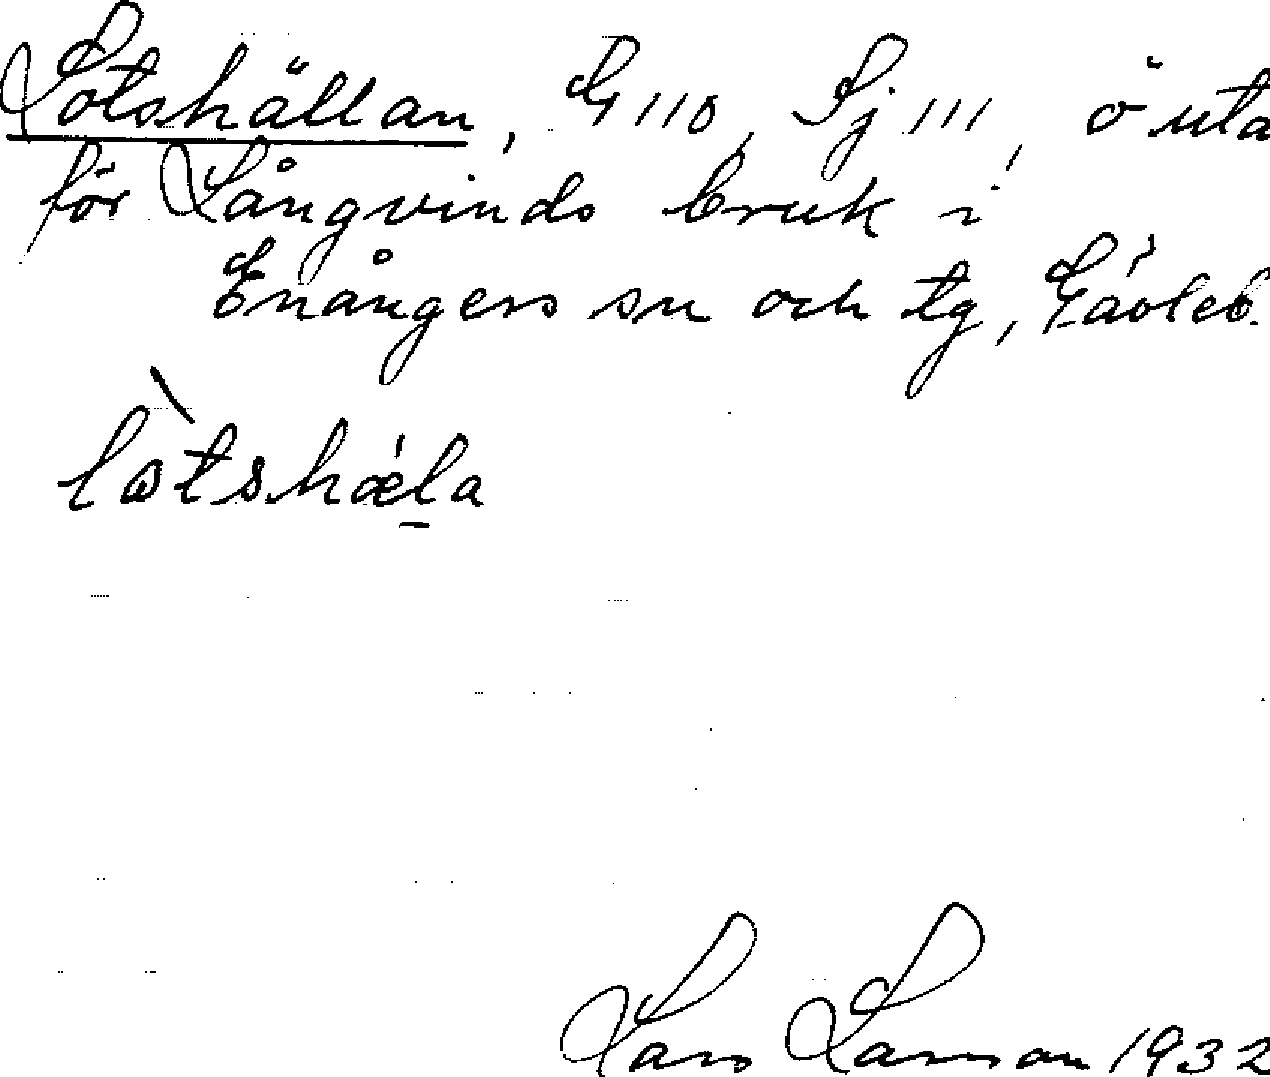 Lotshällan, G 110, Sj 111, ö uta
för Långvinds bruk i
Enångers sn och tg, Gävleb.
lɷ̀tshǽla
Lars Larson 1932